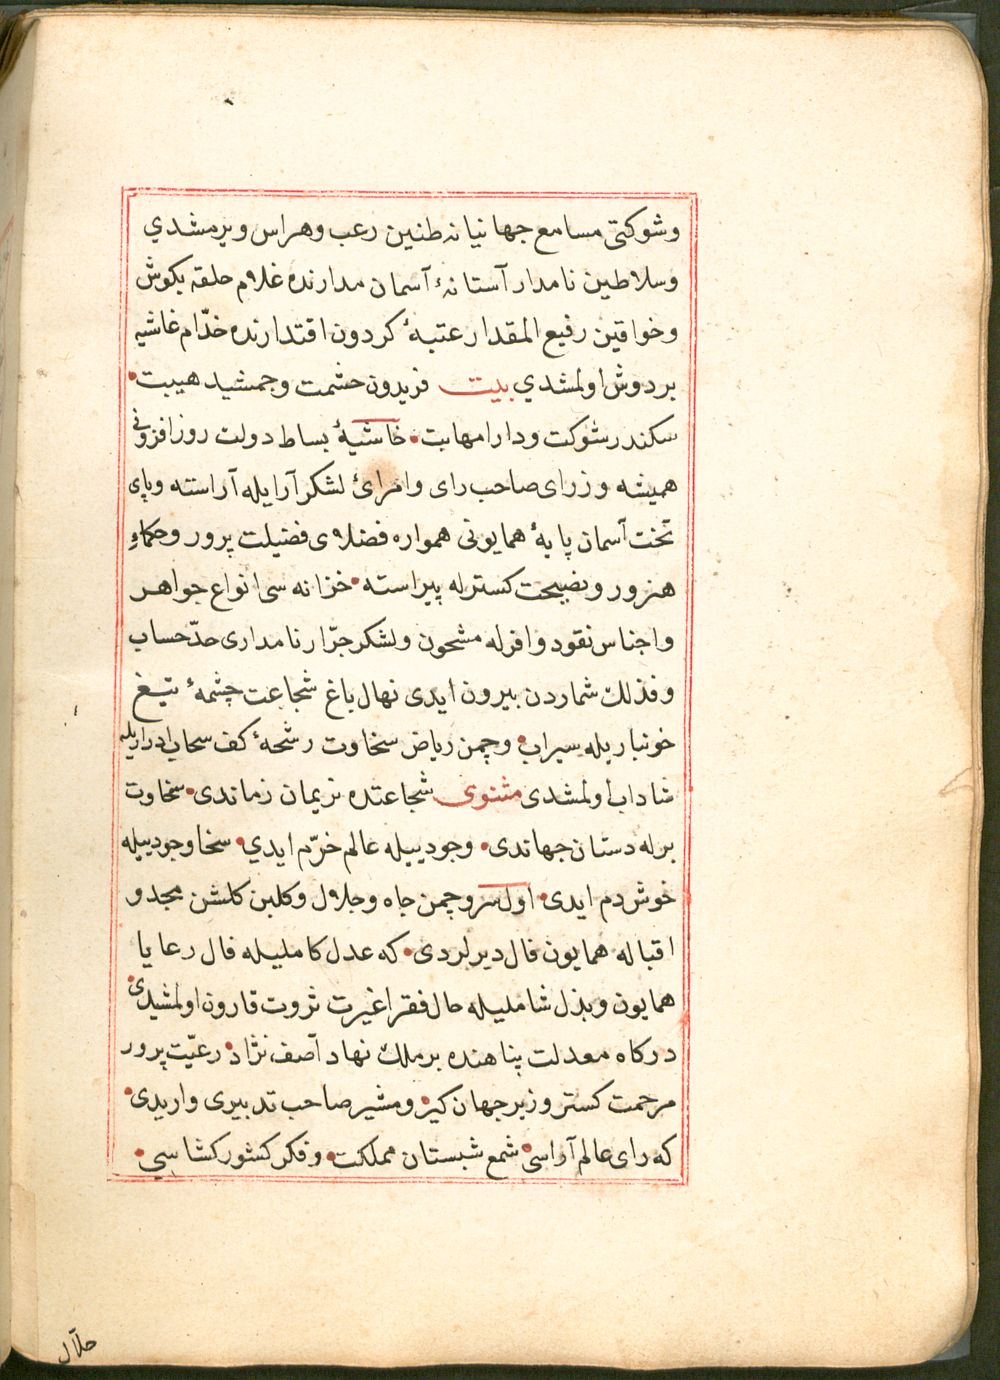 وشوكتى مسامع جهانيانه طنين رعب وهراس ويرمشدي
وسلاطين نامدار آستانهٔ آسمان مدارنده غلام حلقه بكوش
وخواقين رفيع المقدار عتبهٔ كردون اقتدارنده خدّام غاشيه
بردوش اولمشدي بيت فريدون حشمت وجمشيد هيبت
سكندر شوكت ودارا مهابت حاشيهٔ بساط دولت روزافزونى
هميشه وزراى صاحب راى وامراىٔ لشكر آرايله آراسته وپاى
تخت آسمان پايهٔ همايونى همواره فضلاى فضيلت پرور وحكماءِ
هنرور ونصيحت كسترله پيراسته خزانه سى انواع جواهر
واجناس نقود وافرله مشحون ولشكر جرّار نامدارى حدّ حساب
وفذلك شماردن بيرون ايدى نهال باغ شجاعت چشمهٔ تيغ
خونباريله سيراب وچمن رياض سخاوت رشحهٔ كف سحاب ادراريله
شاداب اولمشدى مثنوى شجاعتده نريمان زماندى سخاوت
برله دستان جهاندى وجوديله عالم خرّم ايدي سخا وجوديله
خوش دم ايدى اول سرو چمن جاه وجلال وكلبن كلشن مجد و
اقباله همايون فال ديرلردى كه عدل كامليله فال رعايا
همايون وبذل شامليله حال فقرا غيرت ثروت قارون اولمشيدى
دركاه معدلت پناهنده بر ملك نهاد آصف نژاد رعيّت پرور
مرحمت كستر وزير جهان كير ومشير صاحب تدبيرى واريدى
كه راى عالم آراسى شمع شبستان مملكت وفكر كشور كشاسي
حلّال